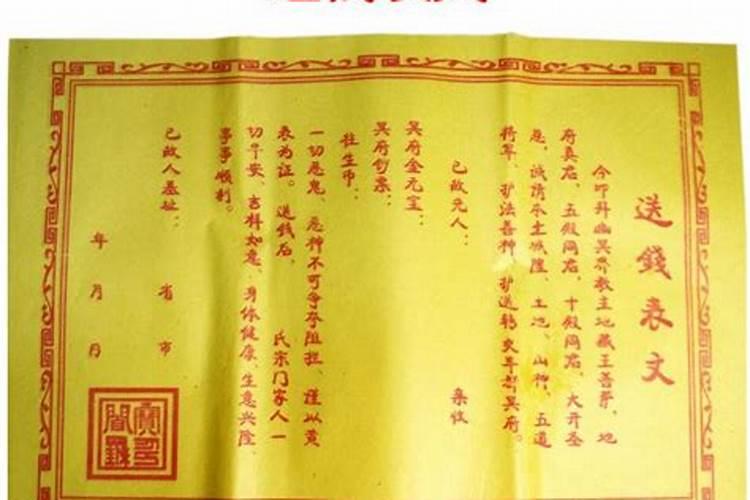 送錢表文
今叩拜幽冥界教主地藏王菩萨、地
府真君、五殿阎君、十殿阎君、大开圣
恩、诚请本土城隍、土地、山神、五道
将军、护法善神、护送转交丰都冥府。
已故亡人： 亲收
冥府金元宝：
冥府钞票：
往生币：
一切恶鬼、恶神不可争夺阻拦、谨以黄
表为证。送钱后、 氏宗门家人一
切平安、吉祥如意、身体健康、生意兴隆、
事事顺利。
已故人墓址： 省 市
年 月 日